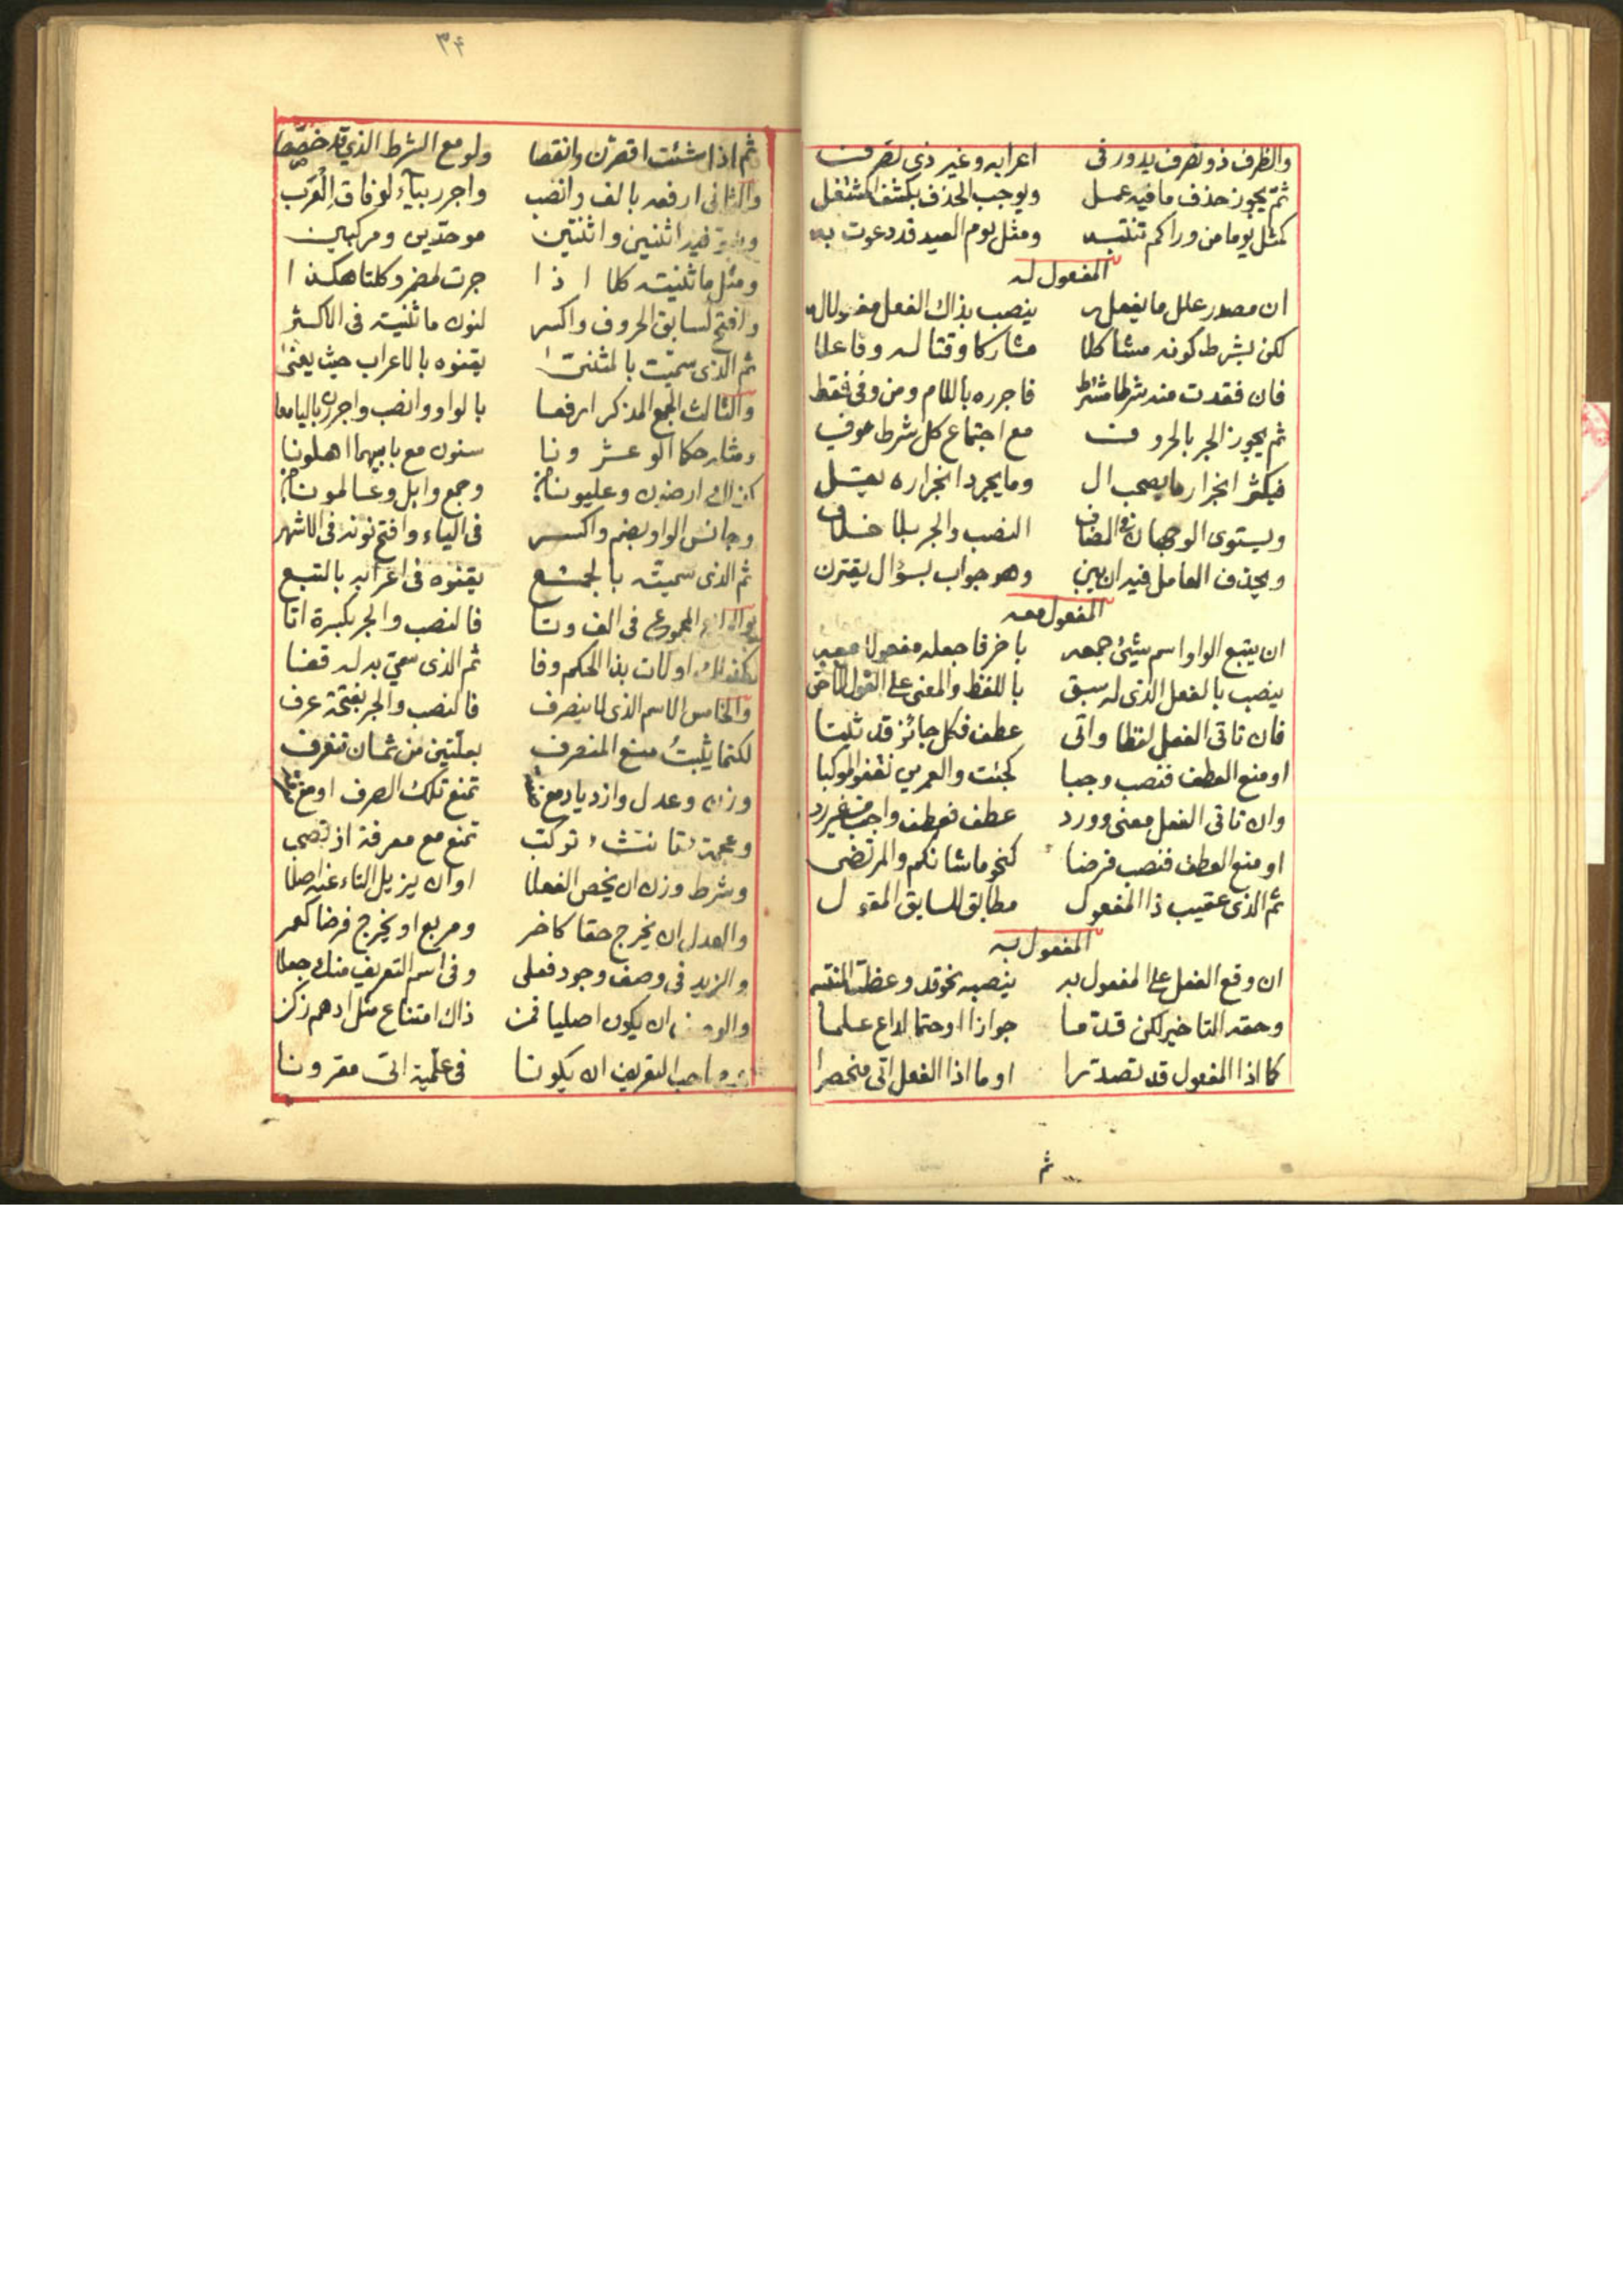 والظرف ذو تصرف يدور فى اعرابه وغير ذى تصرف
ثم يجوز حذف ما فيه عمل ويوجب الحذف بكشف
كمثل يوما من وراكم تنتبه ومثل يوم العيد قد دعوت به
المفعول له
ان مصدر علل ما يفعل ينصب بذاك الفعل مفعولا له
لكن بشرط كونه مشاكلا مشاركا وقتا له وفاعلا
فان فقدت منه شرطا فاجرره باللام ومن وفى فقط
ثم يجوز الجر بالحروف مع اجتماع كل شرط
فيكثر انجرار ما يصحب ال وما يجرد انجراره يقل
ويستوى الوجهان فى المضاف النصب والجر بلا خلاف
ويحذف العامل فيه ان يبن وهو جواب بسؤال يقترن
المفعول معه
ان يتبع الواو اسم شيئ جمعه باخر فاجعله مفعولا معه
ينصب بالفعل الذى له سبق باللفظ والمعنى على القول الاحق
فان تاتى الفعل لفظا واتى عطف فكل جائز قد ثبتا
او منع العطف فنصب وجبا كجئت والعمرين نقفو الموكبا
وان تاتى الفعل معنى وورد عطف فعطف واجب من غير رد
او منع العطف فنصب فرضا كنحو ما شانكم والمرتضى
ثم الذى عقيب ذا المفعول مطابق للسابق المقول
المفعول به
ان وقع الفعل على المفعول به ينصبه نحو قد وعظت المنتبه
وحقه التاخير لكن قدما جوازا او حتما لداع علما
كما اذا المفعول قد تصدرا او ما اذا الفعل اتى منحصرا
ثم
٣٤
ثم اذا شئت اقصرن وانقصا ولو مع الشرط الذى قد خصصا
والثانى ارفعه بالف وانصب واجرر بياء لوفاق العرب
اثنين واثنتين موحدين ومركبين
ومثل ما ثنيته كلا اذا جرت لمضمر وكلتا هكذا
وافتح لسابق الحروف واكسر لنون ما ثنيته فى الاكثر
ثم الذى سميت بالمثنى يقنوه بالاعراب حيث يعنى
والثالث الجمع المذكر ارفعا بالواو وانصب واجرره باليا معا
عشرونا سنون مع بابيهما اهلونا
كذلك ارضون وعليونا وجمع وابل وعالمونا
وجانس الواو بضم واكسر فى الياء وافتح نونه فى الاشهر
ثم الذى سميته بالجمع يقنوه فى اعرابه بالتبع
والرابع المجموع فى الف وتا فالنصب والجر بكسرة اتا
اولات بذا الحكم وفا ثم الذى سمى به له قفا
والخامس الاسم الذى لا ينصرف فالنصب والجر بفتحة عرف
لكنما يثبت منع المنصرف بعلتين من ثمان تنعرف
وزن وعدل وازدياد مع تمنع تلك الصرف او مع
وعجمة تركب تمنع مع معرفة اذ تصحب
وشرط وزن ان يخص الفعلا او ان يزيل التاء عنه اصلا
والعدل ان يخرج حقا كاخر ومربع او يخرج فرضا كعمر
والزيد فى وصف وجود فعلى وفى اسم التعريف منك جعلا
والوصف ان يكون اصليا فمن ذاك امتناع مثل ادهم زكن
التعريف ان يكونا فى علمية اتى مقرونا